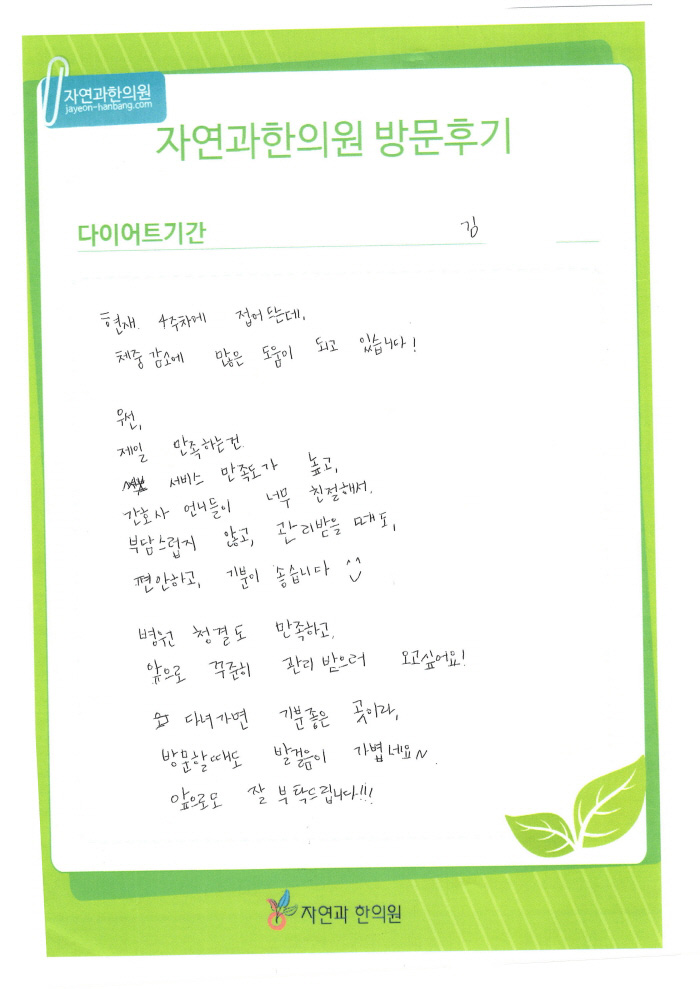 자연과한의원
jayeon-hanbang.com
자연과한의원 방문후기
다이어트기간 김
현재 4주차에 접어드는데,
체중감소에 많은 도움이 되고 있습니다!
우선,
제일 만족하는건
서비스 만족도가 높고,
간호사 언니들이 너무 친절해서.
부담스럽지 않고, 관리받을 때도,
편안하고, 기분이 좋습니다 ^^
병원 청결도 만족하고,
앞으로 꾸준히 관리 받으러 오고싶어요!
다녀가면 기분좋은 곳이라,
방문할때도 발걸음이 가볍네요~.
앞으로도 잘 부탁드립니다!!!
자연과 한의원